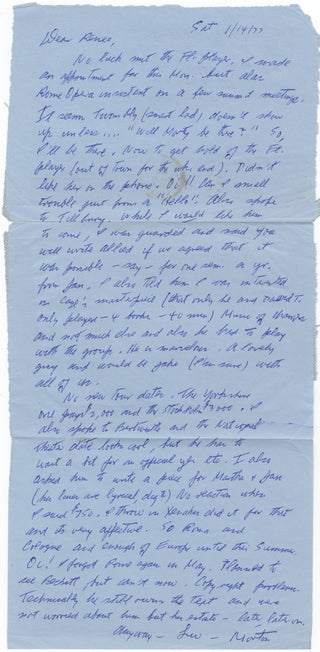 Sat 1/14/77
Dear Renee,
No luck yet the Fl. player. I made
an appointment for this Mon. but alas
Rome Opera insistent on a few summit meetings.
It seem Twombly (sweet lad) doesn't show
up unless.... "Will Morty be there?" So,
I'll be there. Now to get hold of the Fl.
player (out of town for the wk. end). Didn't
like her on the phone. Oi! Can I smell
trouble just from a "Hello". Also spoke
to Tilbury. While I would like him
to come, I was guarded and said you
will write Allied if we agreed that it
was possible - say - for one sem. a yr.
from Jan. I also told him I was interested
in Cage's masterpiece (that only he and David T.
only played - 4 books - 40 min) Music of Changes
and not much else and also he has to play
with the group. He is marvelous. A lovely
guy and would be good (I'm sure) with
all of us.
No new tour dates. The Yorkshire
one pays $2,000 and the Stockholm $3000. I
also spoke to and the National
Theatre date looks cool, but he has to
wait a bit for an official yes etc. I also
asked him to write a piece for Martha & Jan
(her lines are lyrical, dig?) No reaction when
I said $750. I throw in Xenakis did it for that
and its very effective. So Roma and
Cologne and enough of Europe until this Summer.
Oi! I forgot Roma again in May. Planned to
see Beckett but can't now. Copyright problems.
Technically he still owns the text and were
not worried about him but his estate - late late on.
Anyway - Luv - Morton